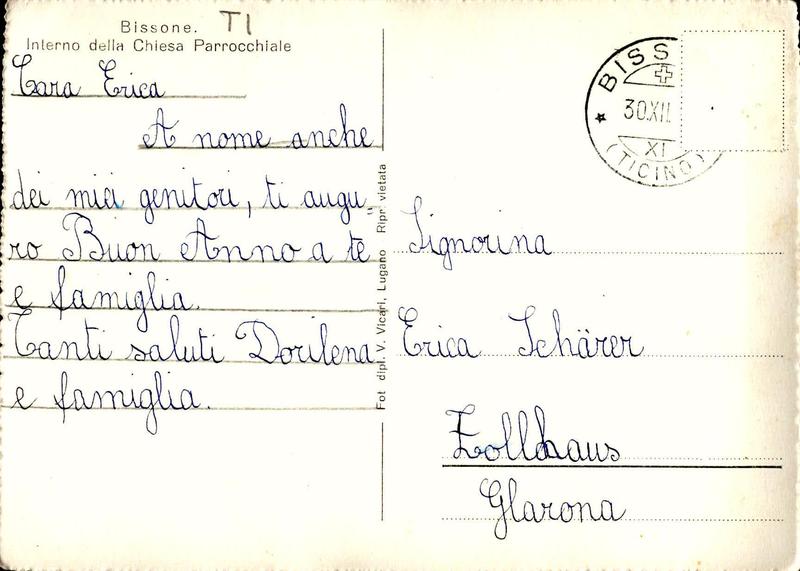 Bissone. TI
Interno della Chiesa Parrocchiale
Cara Erica
A nome anche
dei miei genitori, ti augu=
ro Buon Anno a te
e famiglia.
Tanti saluti Dorilena
e famiglia.
Fot dipl. V. Vicari, Lugano Ripr. vietata
BISS
30.XII.
XI
(TICINO)
Signorina
Erica Schärer
Zollhaus
Glarona